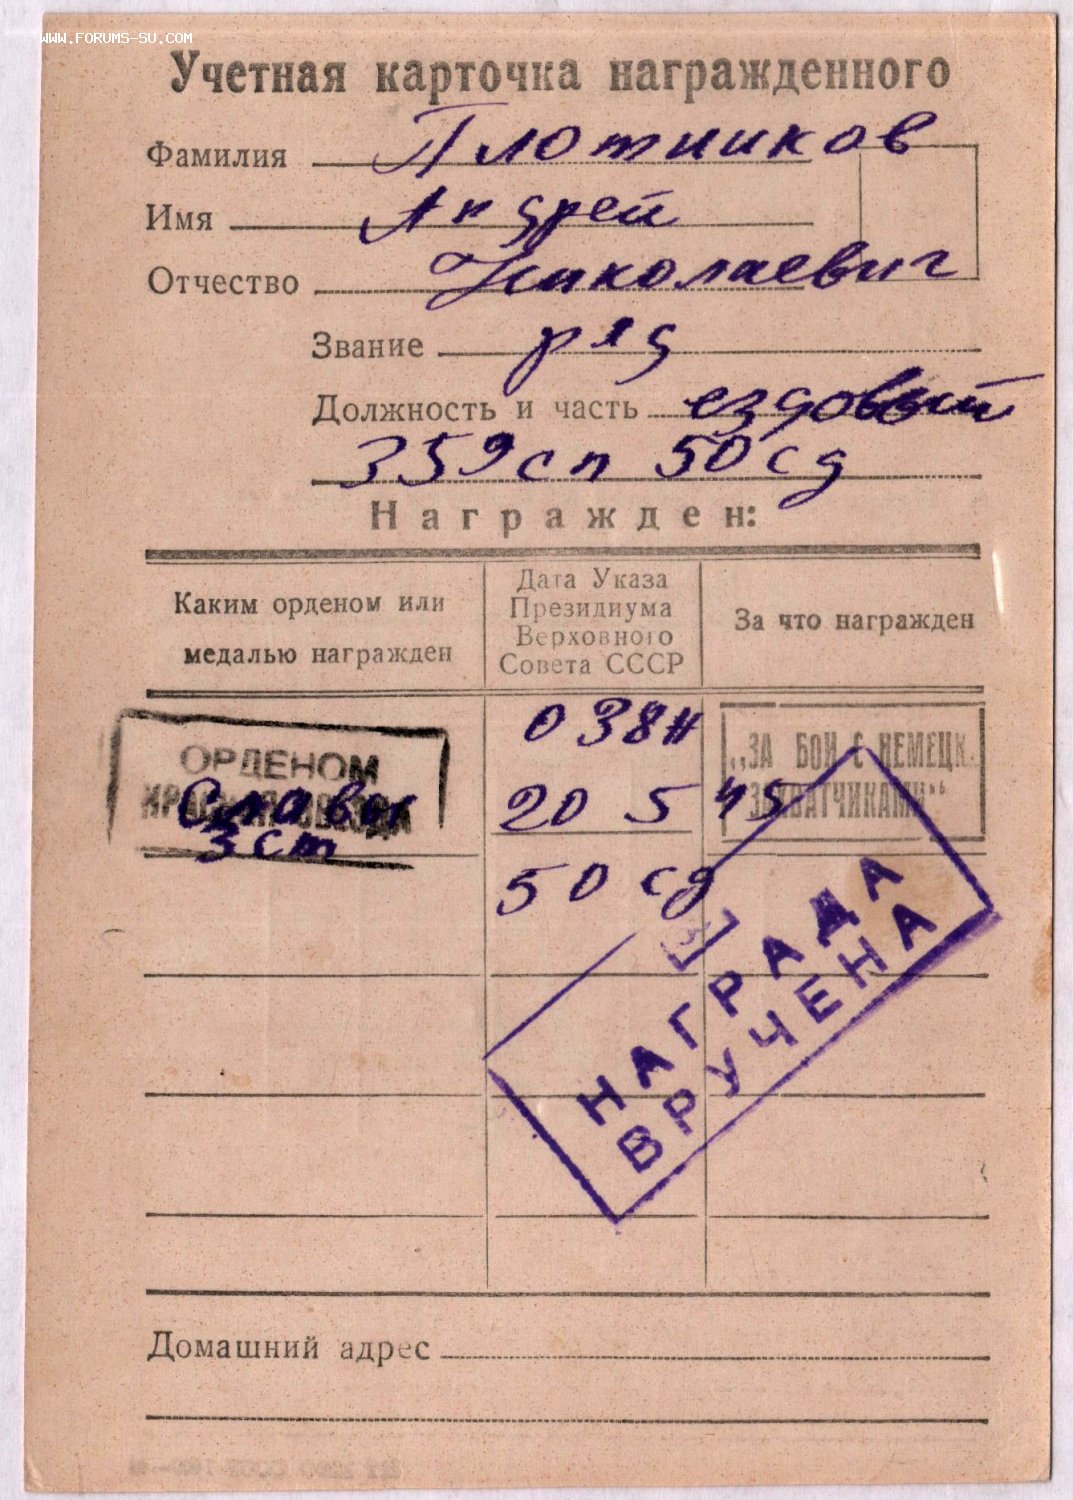 WWW.FORUMS-SU.COM
Учетная карточка награжденного
Фамилия Плотников
Имя Андрей
Отчество Николаевич
Звание ряд
Должность и часть ездовый
359 сп 50 сд
Награжден:
Каким орденом или медалью награжден
Дата Указа Президиума Верховного Совета СССР
За что награжден
ОРДЕНОМ
КРАСНАЯ ЗВЕЗДА
Славы
3 ст
038н
20 5 45
50 сд
„ЗА БОИ С НЕМЕЦК.
ЗАХВАТЧИКАМИ“
НАГРАДА
ВРУЧЕНА
Домашний адрес